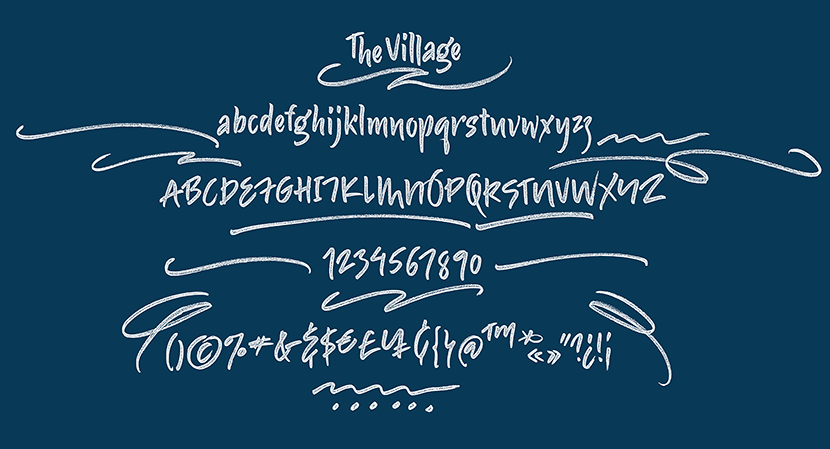 The Village
abcdefghijklmnopqrstuvwxyz
ABCDEFGHIJKLMNOPQRSTUVWXYZ
1234567890
()©%*#&$€£¥¢{}@™*«»"?¿!¡